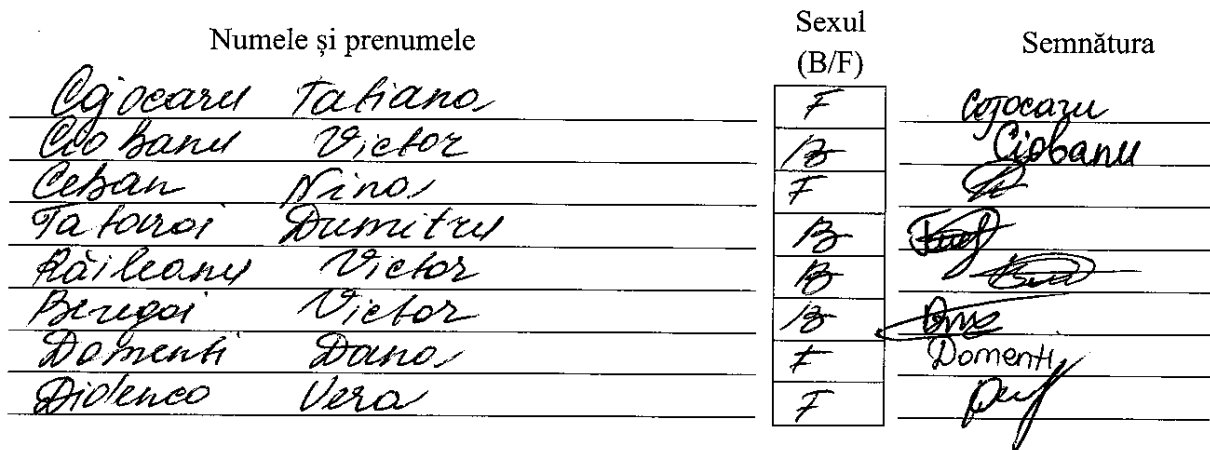 Numele și prenumele Sexul (B/F) Semnătura
Cojocaru Tatiana F Cojocaru
Ciobanu Victor B Ciobanu
Ceban Nina F
Tataroi Dumitru B
Răileanu Victor B
Beregoi Victor B
Domenti Dana F Domenti
Didenco Vera F